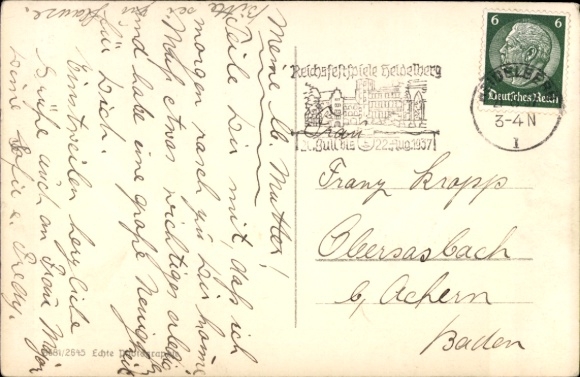 Meine lb. Mutter!
Teile Dir mit, daß ich
morgen rasch zu Dir komme
Muß etwas wichtiges erledigen
und habe eine große Neuigkeit
für Dich.
Einstweilen herzliche
Grüße auch an Frau Major
Deine Sofie u. Fredy.
bitte
zu
Hause.
6 6
Deutsches Reich
HEIDELBERG
3-4 N
Reichsfestspiele Heidelberg
Juli bis 22. Aug. 1937
Frau
Franz Kropp
Obersasbach
b, Achern
Baden
2645 Echte Photographie